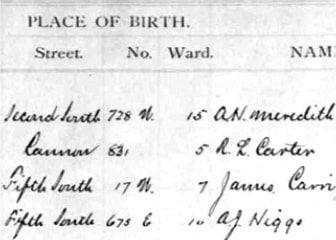 PLACE OF BIRTH.
Street. No. Ward. NAM
Second South 728 W. 15 A.N. Meredith
Cannon 831 5 R. L. Carter
Fifth South 17 W. 7 James Carri
Fifth South 675 E 10 A.J. Higgs